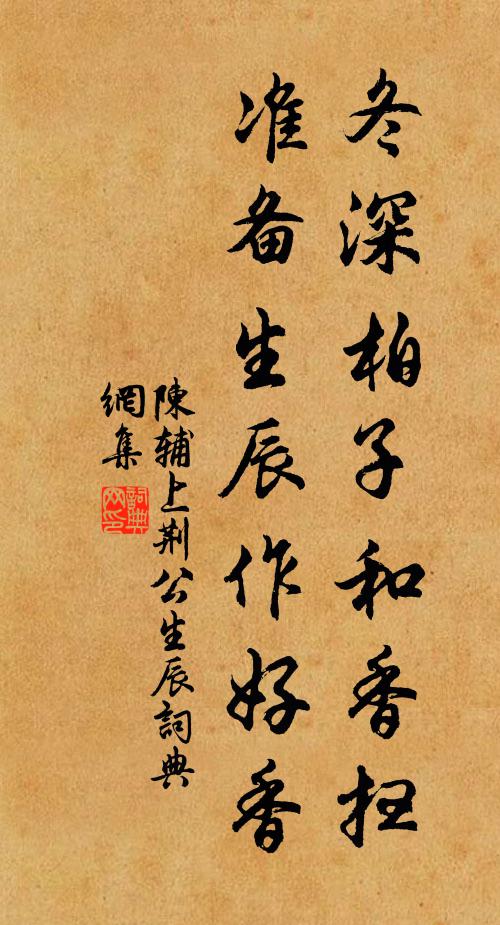 冬深柏子和香
准备生辰作好香
陳辅上荆公生辰詞典
網集
詞典
网印